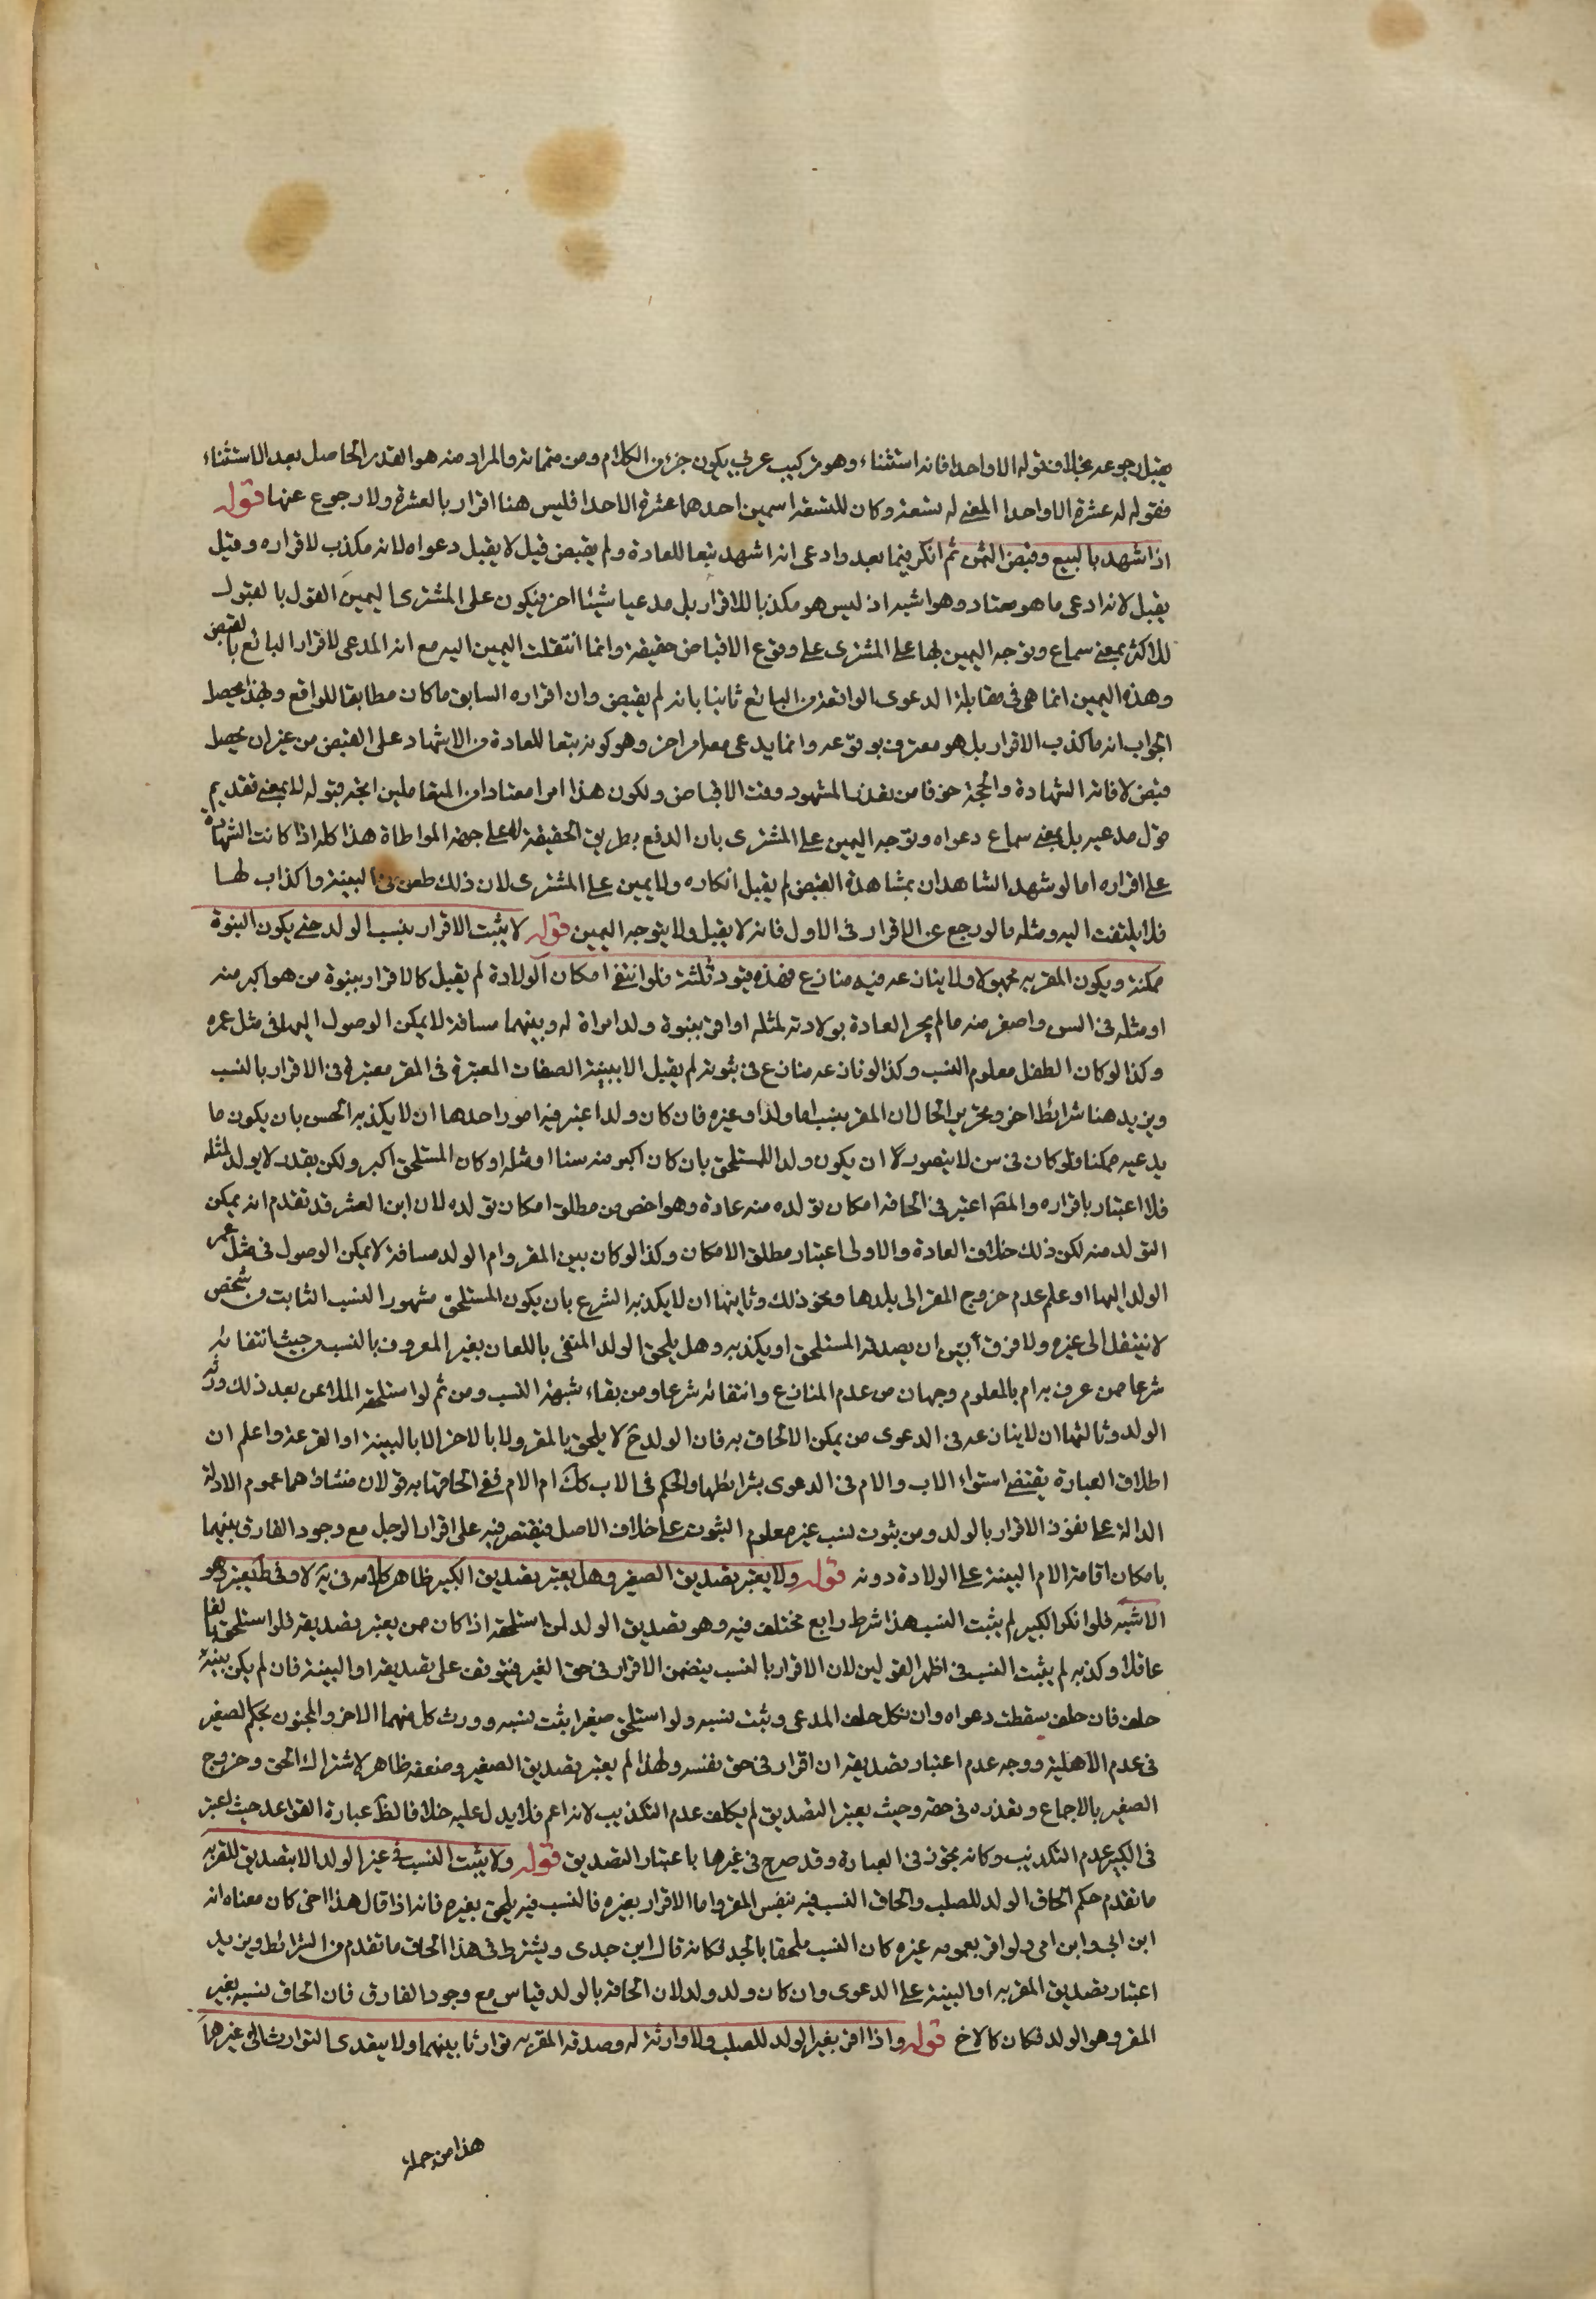 يقبل رجوعه بخلاف قوله الا واحدا فانه استثناء وهو تركيب عربي يكون جزء من الكلام ومن متماته والمراد منه هو القدر الحاصل بعد الاستثناء
فقوله له عشرة الا واحدا المعنى له تسعة وكان للتسعة اسمين احدهما عشرة الا احدا فليس هنا اقرار بالعشرة ولا رجوع عنها قوله
اذا شهد بالبيع وقبض الثمن ثم انكر فيما بعد وادعى انه اشهد تبعا للعادة ولم يقبض قيل لا يقبل دعواه لانه مكذب لاقراره وقيل
يقبل لانه ادعى ما هو معتاد وهو اشبه اذ ليس هو مكذبا للاقرار بل مدعيا شيئا اخر فيكون على المشترى اليمين القول بالقبول
للاكثر بمعنى سماع وتوجه اليمين بها على المشترى على وقوع الاقباض حقيقة وانما انتقلت اليمين اليه مع انه المدعى لاقرار البائع بالقبض
وهذه اليمين انما هى فى مقابلة الدعوى الواقعة من البائع ثانيا بانه لم يقبض وان اقراره السابق ما كان مطابقا للواقع وبهذا يحصل
الجواب انه ما كذب الاقرار بل هو معترف بوقوعه وانما يدعى معه امر اخر وهو كونه تبعا للعادة من الاشهاد على القبض من غير ان يحصل
قبض لاقامة الشهادة والحجة خوفا من تعذر المشهود وقت الاقباض ولكون هذا امرا معتادا من المتعاملين اتجه قبوله لا بمعنى تقديم
قول مدعيه بل بمعنى سماع دعواه وتوجه اليمين على المشترى بان الدفع بطريق الحقيقة لا على جهة المواطاة هذا كله اذا كانت الشهادة
على اقراره اما لو شهد الشاهدان بمشاهدة القبض لم يقبل انكاره ولا يمين على المشترى لان ذلك طعن فى البينة واكذاب لها
فلا يلتفت اليه ومثله ما لو رجع عن الاقرار فى الاول فانه لا يقبل ولا يتوجه اليمين قوله لا يثبت الاقرار بنسب الولد حتى يكون البنوة
ممكنة ويكون المقر به مجهولا ولا ينازعه فيه منازع فهذه قيود ثلثة فلو انتفى امكان الولادة لم يقبل كالاقرار ببنوة من هو اكبر منه
او مثله فى السن واصغر منه مالم يجر العادة بولادته لمثله او اقر ببنوة ولد امراة له وبينهما مسافة لا يمكن الوصول اليها فى مثل عمره
وكذا لو كان الطفل معلوم النسب وكذا لو نازعه منازع فى بنوته لم يقبل الا ببينة الصفات المعتبرة فى المقر معتبرة فى الاقرار بالنسب
ويزيد هنا شرائط اخر وتحرير الحال ان المقر بنسبه اما ولد او غيره فان كان ولدا اعتبر فيه امور احدها ان لا يكذبه الحس بان يكون ما
يدعيه ممكنا فلو كان فى سن لا يتصور ان يكون ولدا للمستلحق بان كان اكبر منه سنا او مثله او كان المستلحق اكبر ولكن بقدر لا يولد لمثله
فلا اعتبار باقراره والمصنف اعتبر فى الحاقه امكان تولده منه عادة وهو اخص من مطلق امكان تولده لان ابن العشر قد تقدم انه يمكن
التولد منه لكن ذلك خلاف العادة والاولى اعتبار مطلق الامكان وكذا لو كان بين المقر وام الولد مسافة لا يمكن الوصول فى مثل عمر
الولد اليها او علم عدم خروج المقر الى بلدها ونحو ذلك وثانيها ان لا يكذبه الشرع بان يكون المستلحق مشهور النسب الثابت من شخص
لا ينتقل الى غيره ولا فرق بين ان يصدقه المستلحق او يكذبه وهل يلحق الولد المنفى باللعان بغير المعروف بالنسب من حيث انتفائه
شرعا ممن عرف به ام بالمعلوم وجهان من عدم المنازع وانتفائه شرعا ومن بقاء شبهة النسب ومن ثم لو استلحقه الملاعن بعد ذلك ورثه
الولد وثالثها ان لا ينازعه فى الدعوى من يمكن الالحاق به فان الولد ح لا يلحق بالمقر ولا بالاخر الا بالبينة او القرعة واعلم ان
اطلاق العبارة يقتضى استواء الاب والام فى الدعوى بشرائطها والحكم فى الاب كك ام الام ففى الحاقها به قولان منشاهما عموم الادلة
الدالة على نفوذ الاقرار بالولد ومن ثبوت نسب غير معلوم الثبوت على خلاف الاصل فيقتصر فيه على اقرار الرجل مع وجود الفارق بينهما
بامكان اقامة الام البينة على الولادة دونه قوله ولا يعتبر تصديق الصغير وهل يعتبر تصديق الكبير ظاهر كلامه فى يه لا وفى ط يعتبر وهو
الاشبه فلو انكر الكبير لم يثبت النسب هذا شرط رابع مختلف فيه وهو تصديق الولد لمن استلحقه اذا كان ممن يعتبر تصديقه فلو استلحق بالغا
عاقلا وكذبه لم يثبت النسب فى اظهر القولين لان الاقرار بالنسب يتضمن الاقرار فى حق الغير فيتوقف على تصديقه او البينة فان لم يكن بينة
حلف فان حلف سقطت دعواه وان نكل حلف المدعى وثبت نسبه ولو استلحق صغيرا ثبت نسبه وورث كل منهما الاخر والمجنون بحكم الصغير
فى عدم الاهلية ووجه عدم اعتبار تصديقه ان اقرار فى حق نفسه ولهذا لم يعتبر تصديق الصغير وضعفه ظاهر لاشتراك الحق وخروج
الصغير بالاجماع وتعذره فى حقه وحيث يعتبر التصديق لم يكلف عدم التكذيب لانه اعم فلا يدل عليه خلافا لظ عبارة القواعد حيث اعتبر
فى الكبير عدم التكذيب وكانه تجوز فى العبارة وقد صرح فى غيرها باعتبار التصديق قوله ولا يثبت النسب فى غير الولد الا بتصديق المقر به
ما تقدم حكم الحاق الولد للصلب والحاق النسب فيه بنفس المقر واما الاقرار بغيره فالنسب فيه يلحق بغيره فانه اذا قال هذا اخى كان معناه انه
ابن ابى وابن امى ولو اقر بعمومه غيره كان النسب ملحقا بالجد فكانه قال ابن جدى ويشترط فى هذا الحاق ما تقدم من الشرائط ويزيد
اعتبار تصديق المقر به او البينة على الدعوى وان كان ولد ولد لان الحاقه بالولد قياس مع وجود الفارق فان الحاق نسبه بغير
المقر وهو الولد فكان كالاخ قوله واذا اقر بغير الولد للصلب ولا وارثة له وصدقه المقر به توارثا بينهما ولا يتعدى التوارث الى غيرهما
هذا من جملة